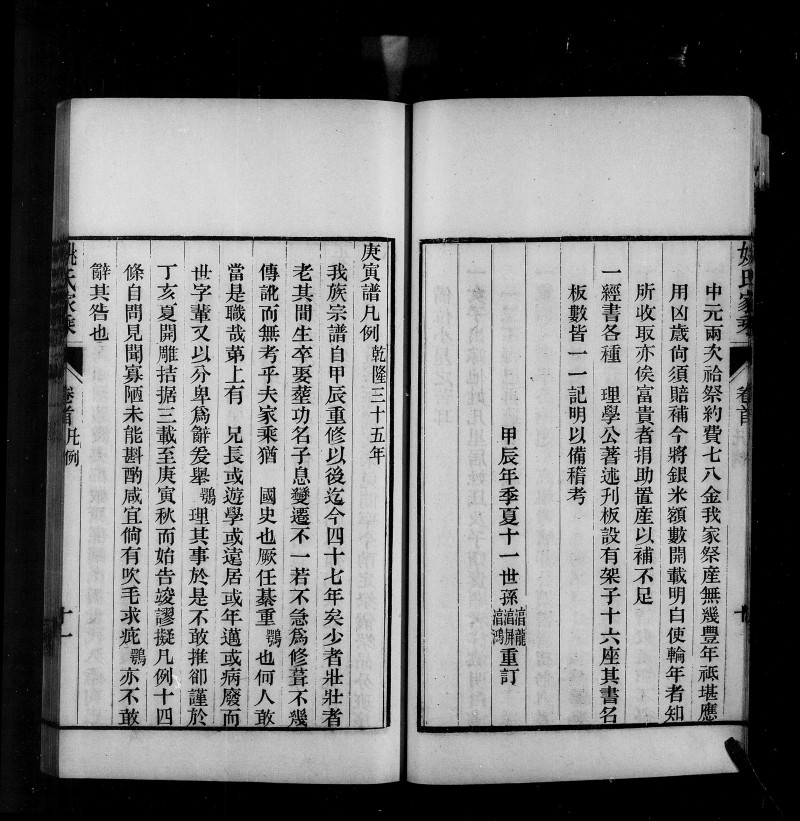 姚氏家乘
卷首凡例
十
中元兩次祫祭約費七八金我家祭產無幾豐年祇堪應
用凶歲尙須賠補今將銀米額數開載明白使輪年者知
所收取亦俟富貴者捐助置産以補不足
一經書各種　理學公著述刋板設有架子十六座其書名
板數皆一一記明以備稽考
甲辰年季夏十一世孫
滔龍
滔屏
滔鴻
重訂
庚寅譜凡例乾隆三十五年
我族宗譜自甲辰重修以後迄今四十七年矣少者壯壯者
老其間生卒娶塟功名子息變遷不一若不急爲修葺不幾
傳訛而無考乎夫家乘猶　國史也厥任綦重鶚也何人敢
當是職哉第上有　兄長或遊學或遠居或年邁或病廢而
世字輩又以分卑爲辭爰舉鶚理其事於是不敢推卻謹於
丁亥夏開雕拮据三載至庚寅秋而始告竣謬擬凡例十四
條自問見聞寡陋未能斟酌咸宜倘有吹毛求疵鶚亦不敢
辭其咎也
姚氏家乘
卷首凡例
十一